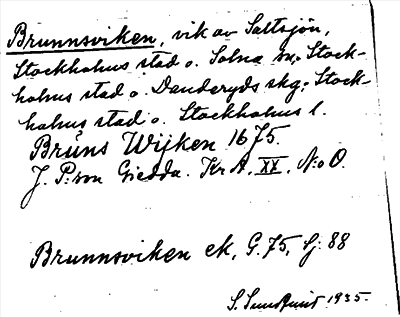 Brunnsviken, vik av Saltsjön,
Stockholms stad o. Solna sn, Stock-
holms stad o. Danderyds skg; Stock-
holms stad o. Stockholms l.
Brúns Wijken 1675.
J. P:son Giedda. Kr A. XX. N:o 0.
Brunnsviken ek, G. 75, Sj: 88
S. 1935.